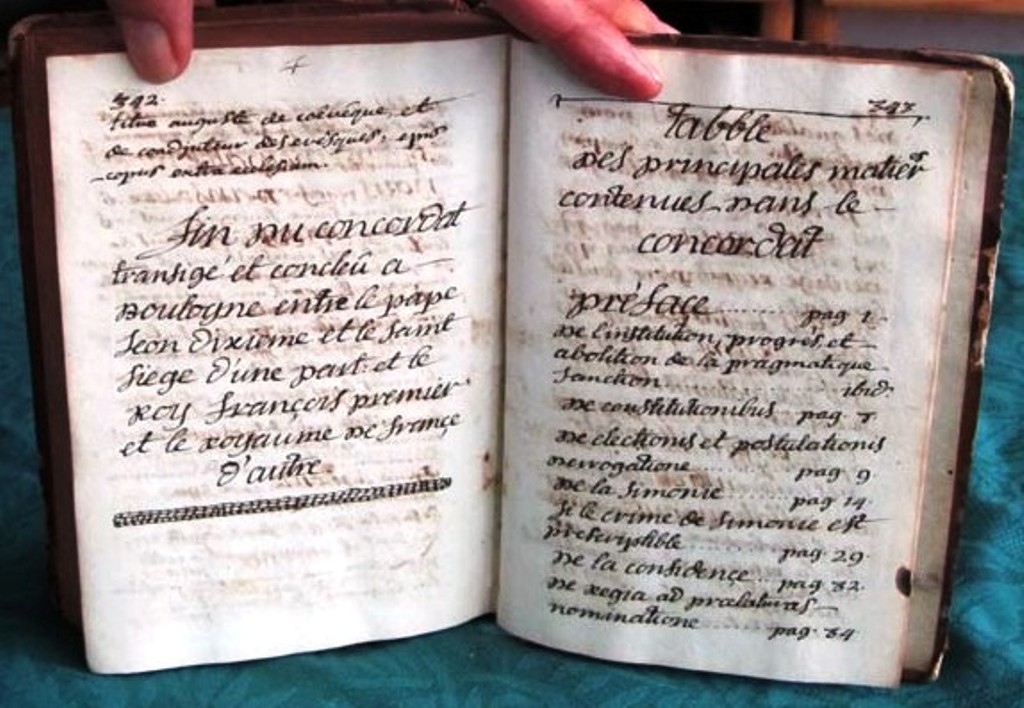 342.
titre auguste de coévêque, et
de coadjuteur des evêsques, epis
copus extra ecclesiam.
fin du concordat
transigé et conclëu a
Boulogne entre le pape
Leon dixieme et le saint
siege d'une part. et le
Roy françois premier
et le royaume de françe
d'autre
343.
tabble
des principales matieres
contenues dans le
concordat
préface ........ pag 1.
de l'institution, progrés et
abolition de la pragmatique
sanction ........ ibid.
de constitutionibus pag
de electionis et postulationis
derrogatione ........ pag 9
de la simonie ........ pag 14
si le crime de simonie est
prescriptible ........ pag. 29.
de la confidençe .. pag 32.
de regia ad prælaturas
nominatione ........ pag. 34